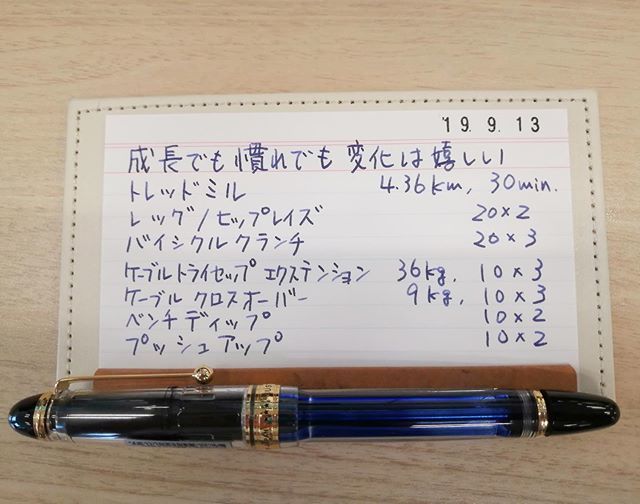 19. 9. 13
成長でも慣れでも変化は嬉しい
トレッドミル 4.36km, 30min.
レッグ/ヒップレイズ 20×2
バイシクルクランチ 20×3
ケーブルトライセップ エクステンション 36kg, 10×3
ケーブル クロスオーバー 9kg, 10×3
ベンチディップ 10×2
プッシュアップ 10×2